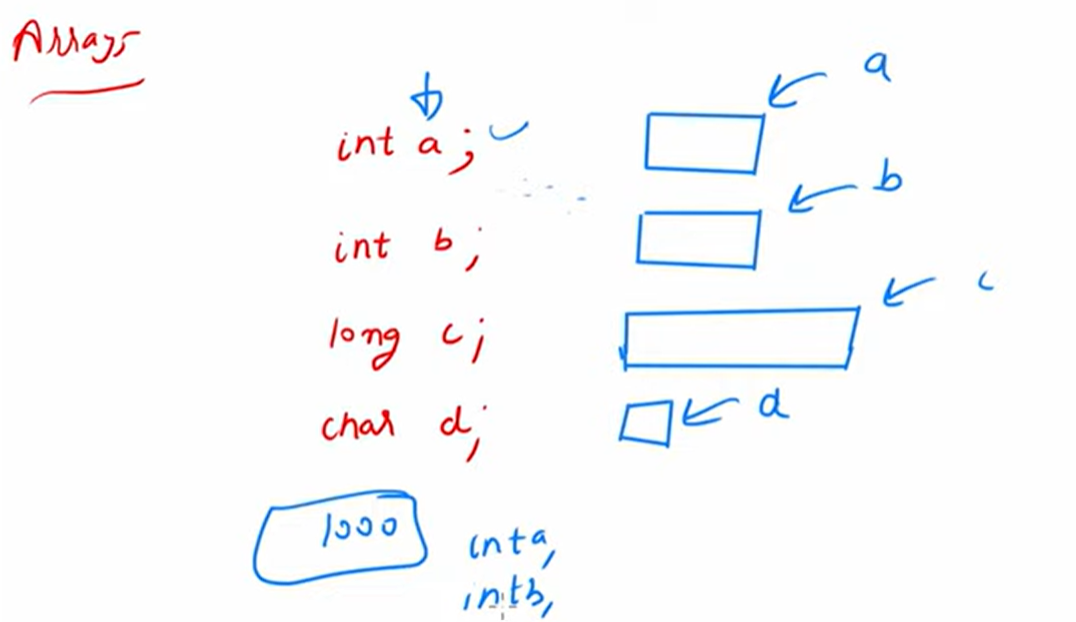 Arrays
int a;
a
int b;
b
long c;
c
char d;
d
1000
int a,
int b,